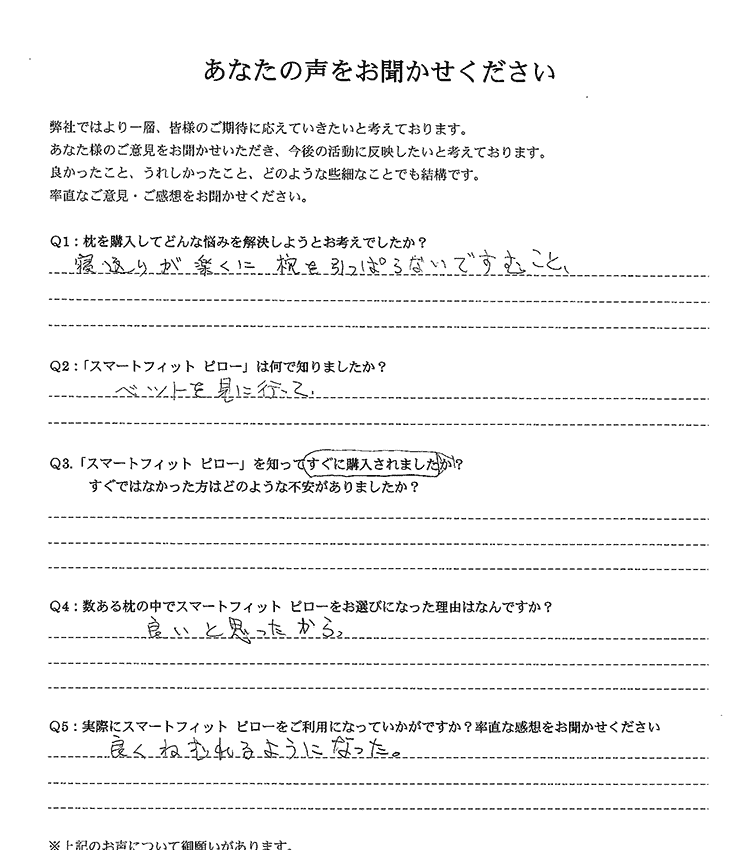 あなたの声をお聞かせください
弊社ではより一層、皆様のご期待に応えていきたいと考えております。
あなた様のご意見をお聞かせいただき、今後の活動に反映したいと考えております。
良かったこと、うれしかったこと、どのような些細なことでも結構です。
率直なご意見・ご感想をお聞かせください。
Q1：枕を購入してどんな悩みを解決しようとお考えでしたか？
寝返りが楽くに枕を引っぱらないですむこと、
Q2：「スマートフィット ピロー」は何で知りましたか？
ベットを見に行って、
Q3.「スマートフィット ピロー」を知ってすぐに購入されましたか？
すぐではなかった方はどのような不安がありましたか？
Q4：数ある枕の中でスマートフィット ピローをお選びになった理由はなんですか？
良いと思ったから。
Q5：実際にスマートフィット ピローをご利用になっていかがですか？率直な感想をお聞かせください
良くねむれるようになった。
※上記のお声について御願いがあります。